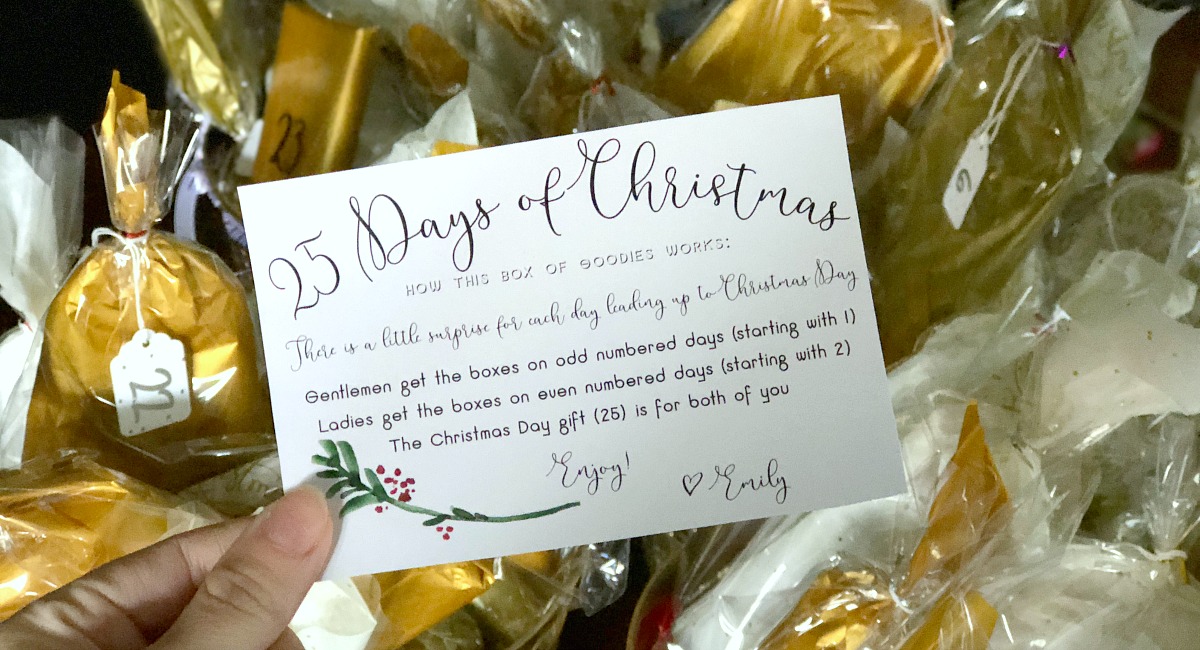 23
9
22
25 Days of Christmas
HOW THIS BOX OF GOODIES WORKS:
There is a little surprise for each day leading up to Christmas Day
Gentlemen get the boxes on odd numbered days (starting with 1)
Ladies get the boxes on even numbered days (starting with 2)
The Christmas Day gift (25) is for both of you
Enjoy!
♡ Emily